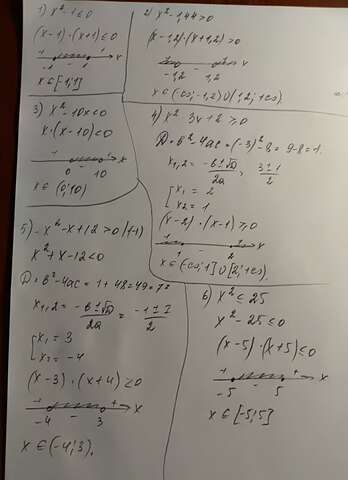 1) x² - 1 ≤ 0
(x-1)·(x+1) ≤ 0
-1 1 x
x ∈ [-1;1]
2) x² - 1,44 > 0
(x-1,2)·(x+1,2) > 0
-1,2 1,2 x
x ∈ (-∞; -1,2) U (1,2; +∞)
3) x² - 10x < 0
x·(x-10) < 0
0 - 10 x
x ∈ (0;10)
4) x² - 3x + 2 ≥ 0
D = b² - 4ac = (-3)² - 8 = 9-8 = 1
x₁,₂ = -b±√D/2a = 3±1/2
x₁ = 2
x₂ = 1
(x-2)·(x-1) ≥ 0
1 - 2 x
x ∈ (-∞; 1] U [2; +∞)
5) -x² - x + 12 > 0 |(-1)
x² + x - 12 < 0
D = b² - 4ac = 1 + 48 = 49 = 7²
x₁,₂ = -b±√D/2a = -1±7/2
x₁ = 3
x₂ = -4
(x-3)·(x+4) < 0
-4 - 3 + x
x ∈ (-4;3).
6) x² ≤ 25
x² - 25 ≤ 0
(x-5)·(x+5) ≤ 0
-5 - 5 + x
x ∈ [-5;5]